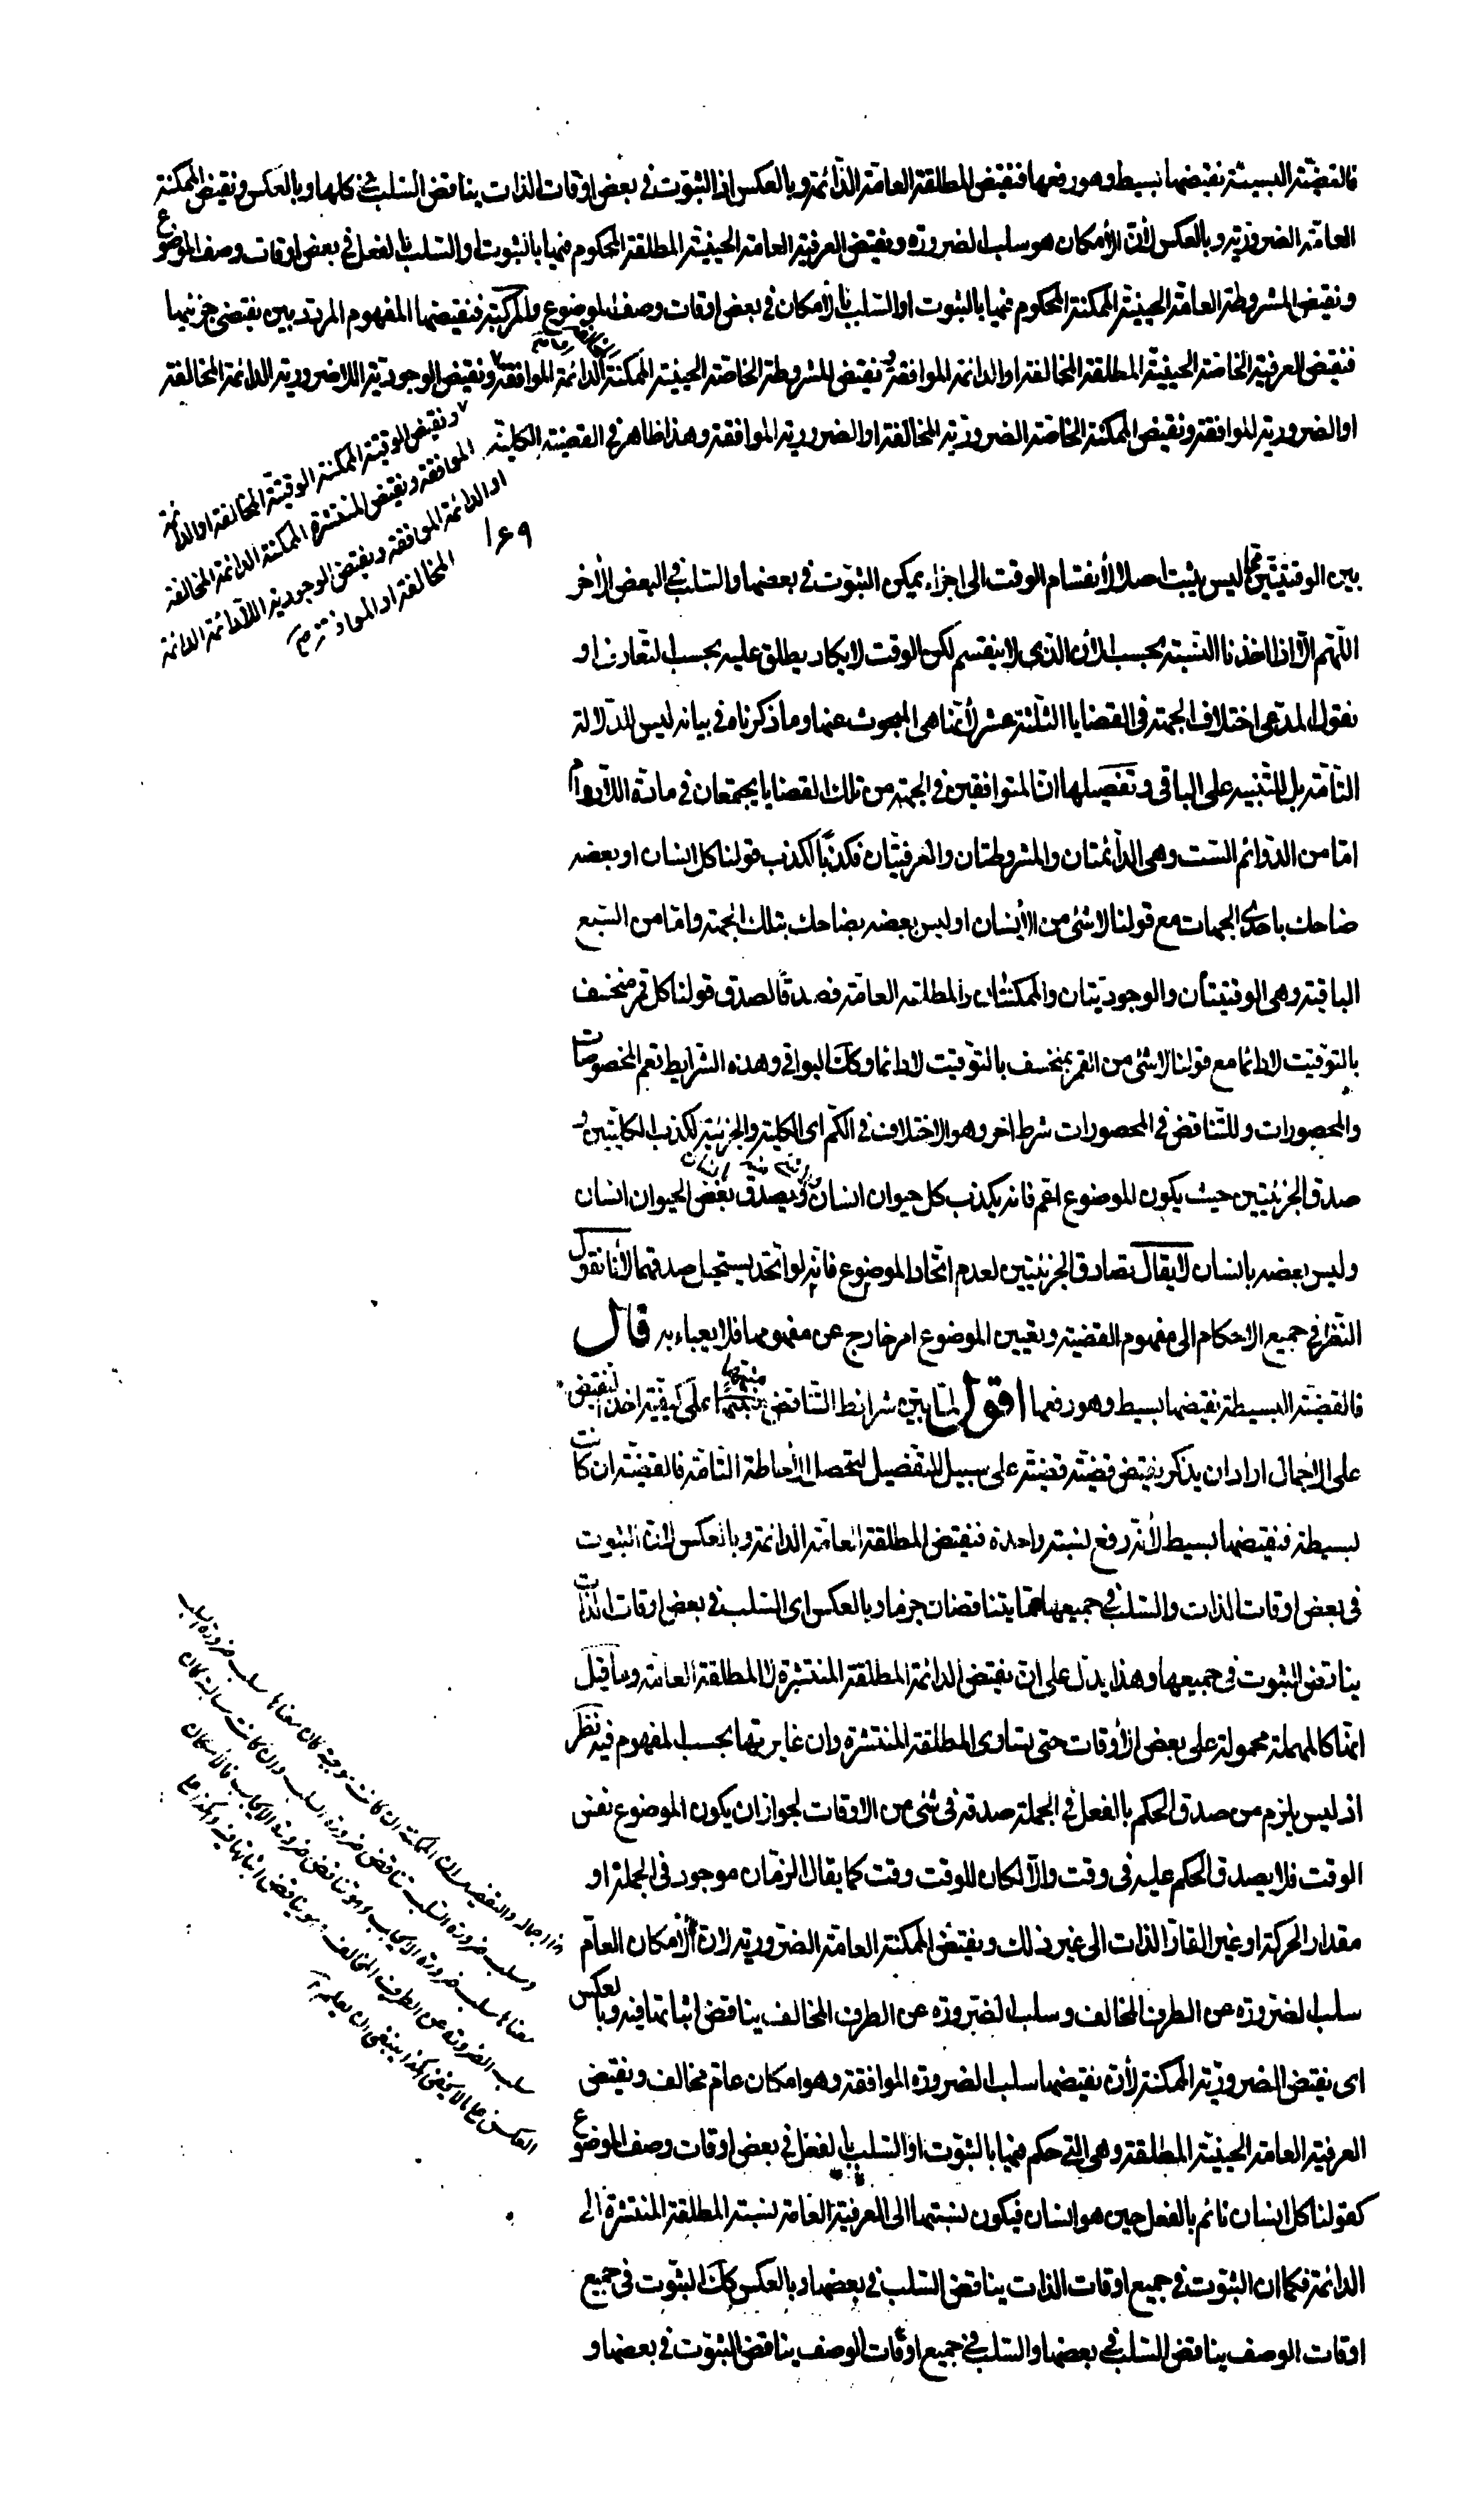 فالقضيّة البسيطة نقيضها بسيط وهو رفعها فنقيض المطلقة العامّة الدّائمة وبالعكس اذ الثبوت فى بعض اوقات الذات يناقض السّلب فى كلها وبالعكس ونقيض الممكنة
العامّة الضروريّة وبالعكس لأنّ الأمكان هو سلب الضرورة ونقيض العرفية العامة الحينيّة المطلقة المحكوم فيها بالثبوت او السّلب بالفعل فى بعض اوقات وصف الموضوع
ونقيض المشروطة العامّة الحينيّة الممكنة المحكوم فيها بالثبوت او السّلب بالأمكان فى بعض اوقات وصف الموضوع والمركبة فنقيضها المفهوم المردّد بين نقيضى جزئيها
فنقيض العرفية الخاصّة الحينيّة المطلقة المخالفة او الدائمة الموافقة ونقيض المشروطة الخاصّة الحينيّة الممكنة الدائمة الموافقة ونقيض الوجوديّة اللاضروريّة الدائمة المخالفة
او الضروريّة الموافقة ونقيض الممكنة الخاصّة الضروريّة المخالفة او الضروريّة الموافقة وهذا ظاهر فى القضيّة الكليّة
ونقيض الوقتيّة الممكنة الوقتيّة المخالفة او الدائمة
الموافقة ونقيض المنتشرة الممكنة الدائمة المخالفة
او الدائمة الموافقة ونقيض الوجودية اللادائمة الدائمة
المخالفة او الموافقة صح
١٤٩
بين الوقتيّتين ليس يثبت اصلا لأنقسام الوقت الى اجزاء يمكن الثبوت فى بعضها والسّلب فى البعض الأخر
اللّهمّ الّا اذا اخذنا النّسبة بحسب الأن الذى لا ينقسم لكن الوقت لا يكاد يطلق عليه بحسب التعارف او
نقول المدّعى اختلاف الجهة فى القضايا الثلثة عشر لأنّها هى المبحوث عنها وما ذكرناه فى بيانه ليس للدّلالة
التامّة بل للتّنبيه على الباقى وتفصيلها انّ المتوافقين فى الجهة من تلك القضايا يجتمعان فى مادّة اللّادوام
امّا من الدّوائم السّت وهى الدائمتان والمشروطتان والعرفيّتان فكذبًا لكذب قولنا كل انسان او بعضه
ضاحك باحدى الجهات مع قولنا لا شئ من الأنسان او ليس بعضه بضاحك بتلك الجهة وامّا من السّبع
الباقية وهى الوقتيّتان والوجوديّتان والممكنتان والمطلقة العامّة فصدقًا لصدق قولنا كل قمر منخسف
بالتوقيت لا دائما مع قولنا لا شئ من القمر بمنخسف بالتوقيت لا دائما وكك البواقى وهذه الشرايط تعم المخصوصات
والمحصورات وللتّناقض فى المحصورات شرط اخر وهو الاختلاف فى الكّم اى الكلية والجزئية لكذب الكليّتين و
صدق الجزئيتين حيث يكون الموضوع اعّم فانه يكذب كل حيوان انسان ويصدق بعض الحيوان انسان
وليس بعضه بانسان لا يقال تصادق الجزئيتين لعدم اتّحاد الموضوع فانّه لو اتّحد يستحيل صدقهما لأنا نقول
النّظر فى جميع الاحكام الى مفهوم القضية وتعيين الموضوع امر خارج عن مفهومها فلا يعباء به قال
فالقضيّة البسيطة نقيضها بسيط وهو رفعها اقول لمّا بيّن شرائط التّناقض منبّها على كيفيّة اخذ النقيض
على الاجمال اراد ان يذكر نقيض قضيّة قضيّة على سبيل التفضيل لتحصل الأحاطة التامّة فالقضيّة ان كانت
بسيطة فنقيضها بسيط لأنّه رفع نسبة واحدة فنقيض المطلقة العامّة الدائمة وبالعكس لأن الثبوت
فى بعض اوقات الذات والسّلب فى جميعها ممّا يتناقضان جزما وبالعكس اى السّلب فى بعض اوقات الذات
يناقض الثبوت فى جميعها وهذا يدل على انّ نقيض الدائمة المطلقة المنتشرة لا المطلقة العامّة وما قيل
انّها كالمهملة محمولة على بعض الأوقات حتى يساوى المطلقة المنتشرة وان غايرتها بحسب المفهوم فيه نظر
اذ ليس يلزم من صدق الحكم بالفعل فى الجملة صدقه فى شئ من الاوقات لجواز ان يكون الموضوع نفس
الوقت فلا يصدق الحكم عليه فى وقت والّا لكان للوقت وقت كما يقال الزمان موجود فى الجملة او
مقدار الحركة او غير القارّ الذات الى غير ذلك ونقيض الممكنة العامّة الضروريّة لان الأمكان العامّ
سلب الضرورة عن الطرف المخالف وسلب الضرورة عن الطرف المخالف يناقض اثباتها فيه وبالعكس
اى نقيض الضروريّة الممكنة لأن نقيضها سلب الضرورة الموافقة وهو امكان عام مخالف ونقيض
العرفية العامة الحينيّة المطلقة وهى التى حكم فيها بالثبوت او السّلب بالفعل فى بعض اوقات وصف الموضوع
كقولنا كل انسان نائم بالفعل حين هو انسان فيكون نسبتها الى العرفية العامة نسبة المطلقة المنتشرة الى
الدائمة فكما ان الثبوت فى جميع اوقات الذات يناقض السّلب فى بعضها وبالعكس كك الثبوت فى جميع
اوقات الوصف يناقض السّلب فى بعضها والسّلب فى جميع اوقات الوصف يناقض الثبوت فى بعضها و
والتفصيل ان الممكنة ان كانت موجبة كان معناها سلب ضرورة السلب
وسلب ضرورة السلب يناقض ضرورة السلب وان كانت سالبة كان
معناها سلب ضرورة الايجاب وهو يناقض ضرورة الايجاب فالأمكان
سلب الضرورة عن الطرف المخالف وهو يناقض اثباتها فيه وهكذا
العكس على ما لا يخفى هكذا ينبغى ان يعلم